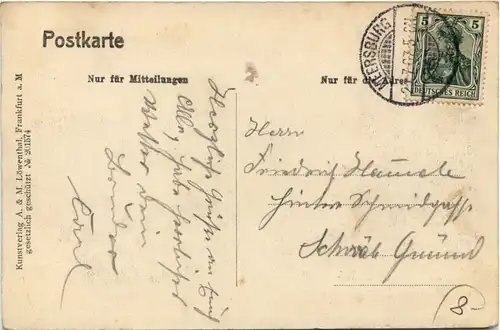 Postkarte
Nur für Mitteilungen
Nur für die Adresse
MEERSBURG
5 5
DEUTSCHES REICH
Kunstverlag A. & M. Löwenthal, Frankfurt a. M
gesetzlich geschützt № 201574
Herzliche Grüße an Euch
Alle, habe herrliches
Wetter Dein
Bruder
Carl
Herrn
Friedrich
Hintere Schmidgasse
Schwäb Gmünd
8-